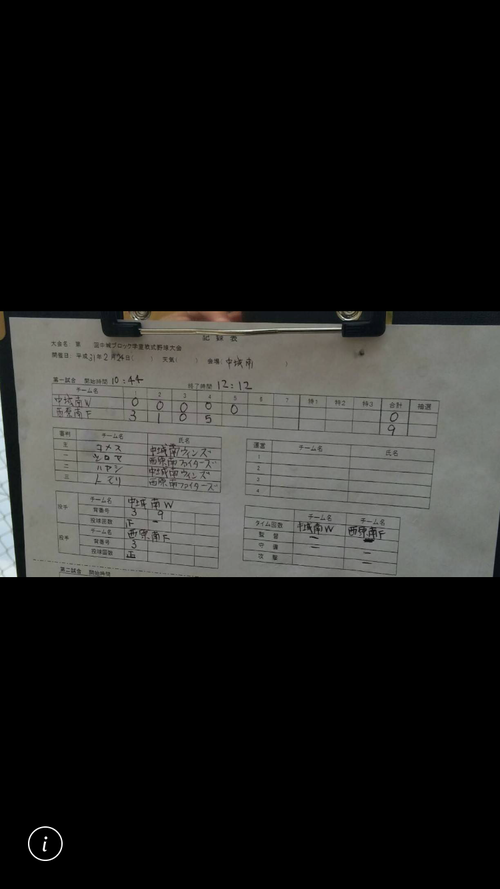 記録表
大会名 第 回中城ブロック学童軟式野球大会
開催日 平成31年2月24日( ) 天気( ) 会場:中城南
第一試合 開始時間 10:44 終了時間 12:12
チーム名 2 3 4 5 6 7 特1 特2 特3 合計 抽選
中城南W 0 0 0 0 0 0
西原南F 3 1 0 5 9
審判 チーム名 氏名
中城南ウィンズ
西原南ファイターズ
二 ハヤシ 中城南ウィンズ
西原南ファイターズ
チーム名 氏名
1
2
3
4
チーム名 中城南W
背番号 3 9
投球回数 正 一
投手 チーム名 西原南F
背番号 3
投球回数 正
チーム名 チーム名
タイム回数 中城南W 西原南F
監督 一
守備 一 一
攻撃 一
第二試合 開始時間